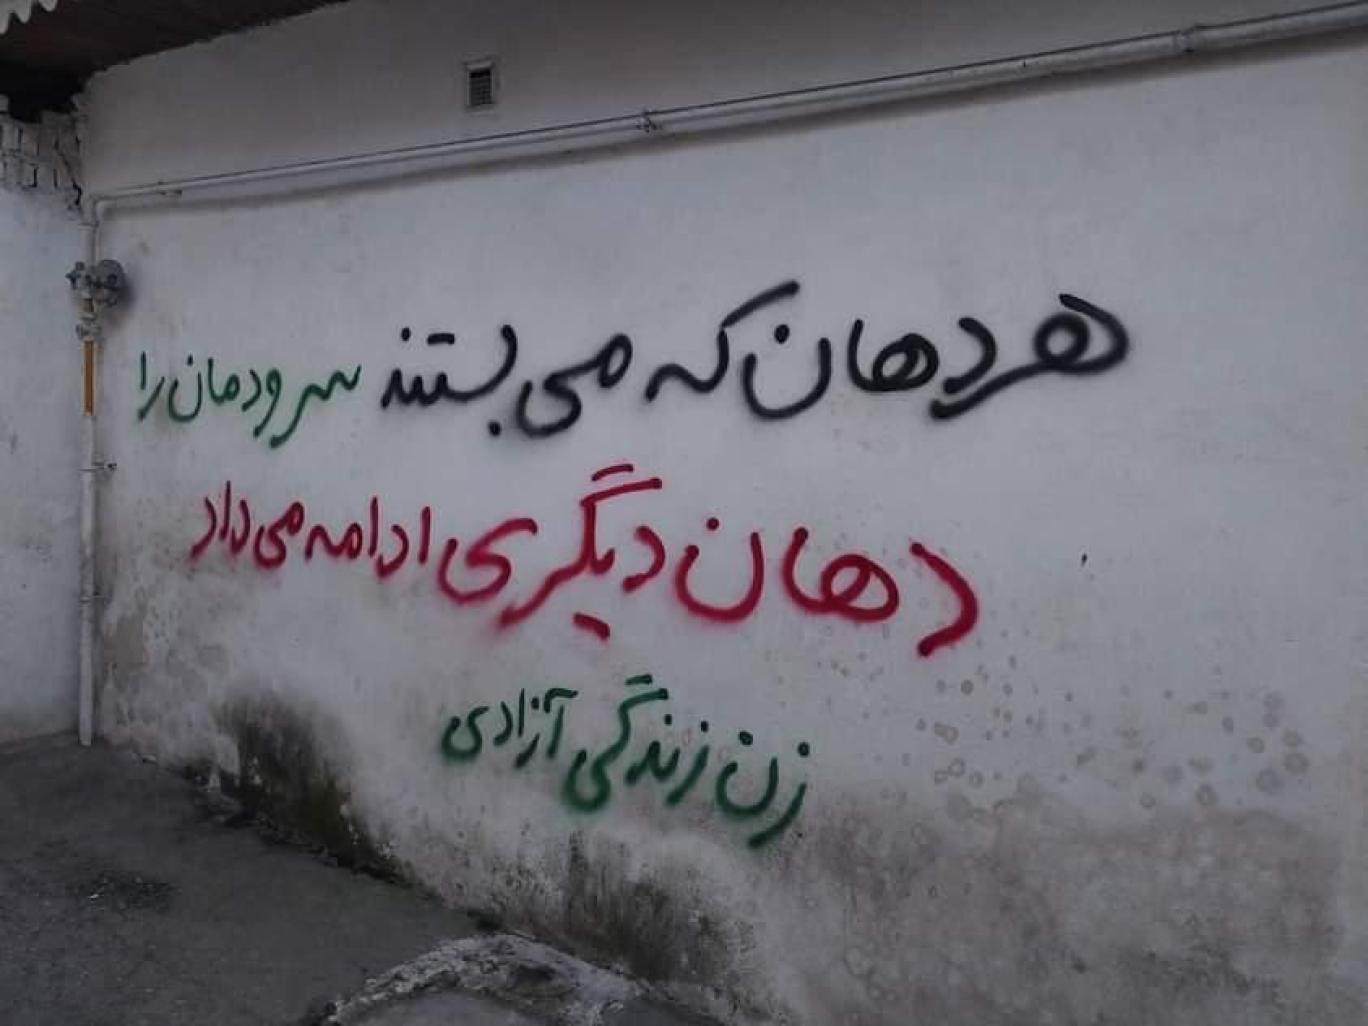 هر دهان که می بستند سرودمان را
دهان دیگری ادامه می داد
زن زندگی آزادی